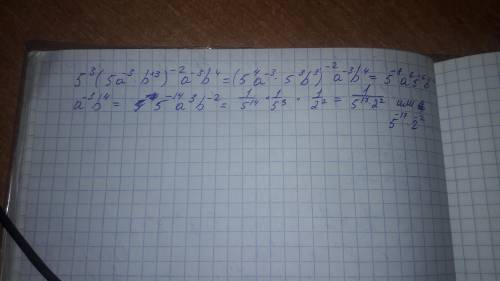 5³(5a⁻³·b⁺³)⁻²a⁻³b⁴=(5⁴a⁻³·5³b³)⁻²a⁻³b⁴=5⁻⁸a⁶5⁻⁶b⁻⁶
a⁻³b⁴= 5⁻¹⁴a³b⁻²= 1/5¹⁴·1/5³·1/2²= 1/5¹⁷2² или
5⁻¹⁷·2⁻²